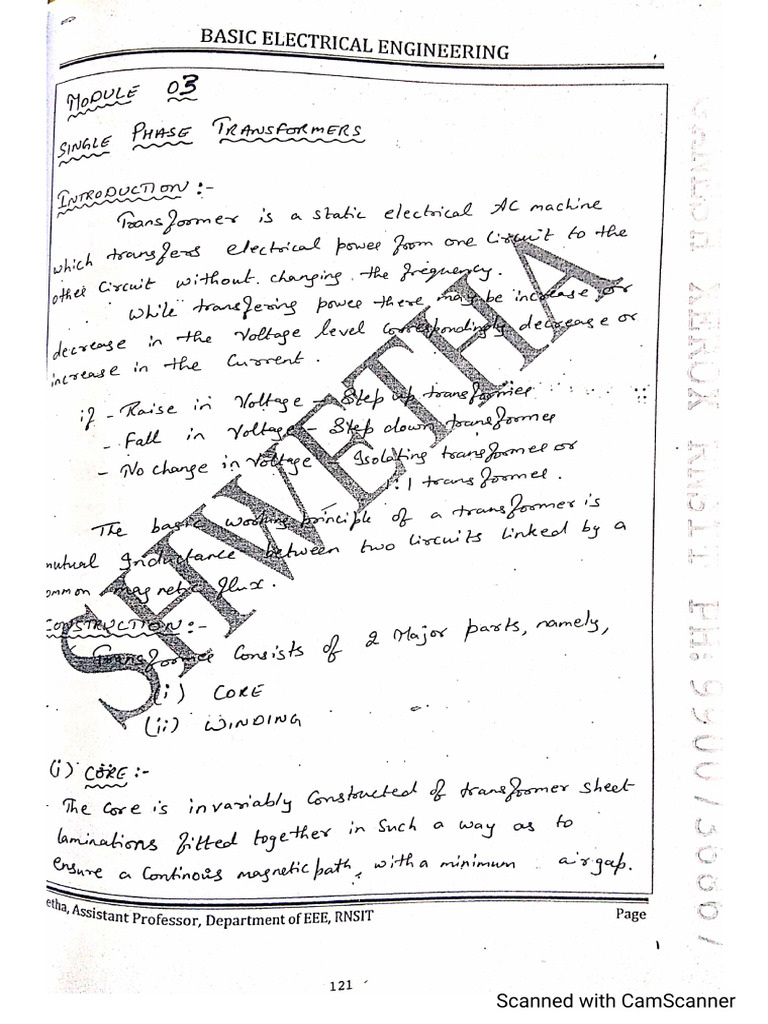 BASIC ELECTRICAL ENGINEERING
MODULE 03
SINGLE PHASE TRANSFORMERS
INTRODUCTION :-
Transformer is a static electrical AC machine
which transfers electrical power from one Circuit to the
other Circuit without changing the frequency.
While transfering power there may be increase or
decrease in the Voltage level correspondingly decrease or
increase in the Current.
if - Raise in Voltage - Step up transformer
- Fall in Voltage - Step down transformer
- No change in Voltage - Isolating transformer or
1:1 transformer.
The basic working principle of a transformer is
mutual Inductance between two Circuits linked by a
ommon magnetic flux.
CONSTRUCTION :-
Transformer Consists of 2 Major parts, namely,
(i) CORE
(ii) WINDING
(i) CORE :-
The Core is invariably Constructed of transformer sheet
laminations fitted together in Such a way as to
ensure a Continous magnetic path, with a minimum air gap.
etha, Assistant Professor, Department of EEE, RNSIT
Page
1
121
Scanned with CamScanner
SHWETHA